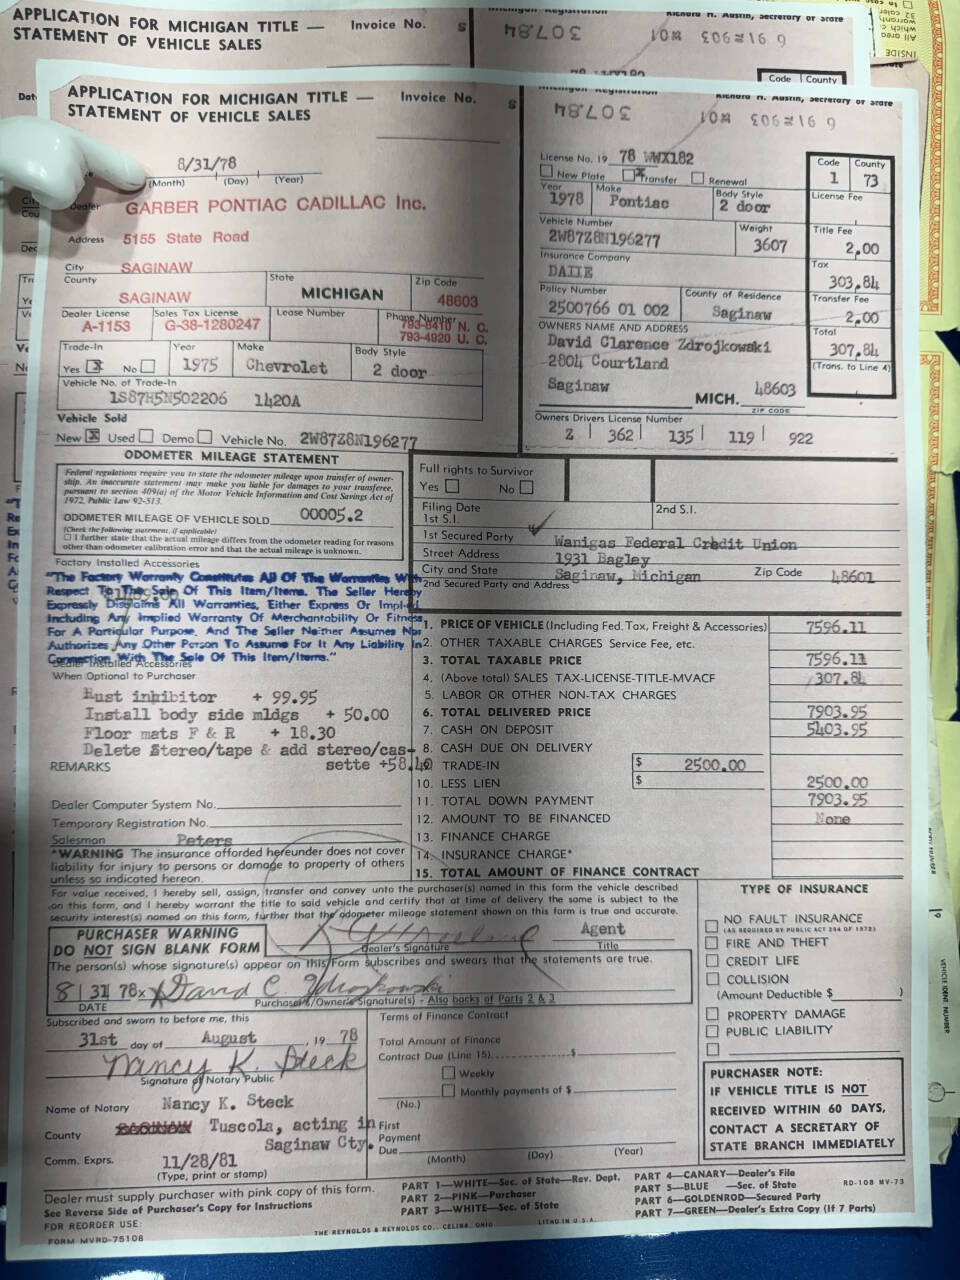 APPLICATION FOR MICHIGAN TITLE —
STATEMENT OF VEHICLE SALES
Invoice No.
S
Richard H. Austin, Secretary of State
Code County
INSIDE
All area
APPLICATION FOR MICHIGAN TITLE —
STATEMENT OF VEHICLE SALES
Invoice No.
S
Michigan Registration
Richard H. Austin, Secretary of State
8/31/78
(Month) (Day) (Year)
Dealer GARBER PONTIAC CADILLAC Inc.
Address 5155 State Road
City SAGINAW
County SAGINAW
State MICHIGAN
Zip Code 48603
Dealer License A-1153
Sales Tax License G-38-1280247
Lease Number
Phone Number
793-8410 N. C.
793-4920 U. C.
Trade-In Yes X No
Year 1975
Make Chevrolet
Body Style 2 door
Vehicle No. of Trade-In
1S87H5N502206 1420A
Vehicle Sold
New X Used Demo Vehicle No. 2W87Z8N196277
License No. 19 78 WWX182
New Plate X Transfer Renewal
Year 1978
Make Pontiac
Body Style 2 door
Vehicle Number 2W87Z8N196277
Weight 3607
Insurance Company
DAIIE
Policy Number 2500766 01 002
County of Residence Saginaw
OWNERS NAME AND ADDRESS
David Clarence Zdrojkowski
2804 Courtland
Saginaw MICH. 48603
ZIP CODE
Owners Drivers License Number
Z 362 135 119 922
Code 1
County 73
License Fee
Title Fee 2,00
Tax 303,84
Transfer Fee 2,00
Total 307,84
(Trans. to Line 4)
ODOMETER MILEAGE STATEMENT
Federal regulations require you to state the odometer mileage upon transfer of owner-
ship. An inaccurate statement may make you liable for damages to your transferee,
pursuant to section 409(a) of the Motor Vehicle Information and Cost Savings Act of
1972, Public Law 92-513.
ODOMETER MILEAGE OF VEHICLE SOLD 00005.2
(Check the following statement, if applicable)
I further state that the actual mileage differs from the odometer reading for reasons
other than odometer calibration error and that the actual mileage is unknown.
Factory Installed Accessories
"The Factory Warranty Constitutes All Of The Warranties With
Respect To The Sale Of This Item/Items. The Seller Hereby
Expressly Disclaims All Warranties, Either Express Or Implied,
Including Any Implied Warranty Of Merchantability Or Fitness
For A Particular Purpose, And The Seller Neither Assumes Nor
Authorizes Any Other Person To Assume For It Any Liability In
Connection With The Sale Of This Item/Items."
Dealer Installed Accessories
When Optional to Purchaser
Rust inhibitor + 99.95
Install body side mldgs + 50.00
Floor mats F & R + 18.30
Delete Stereo/tape & add stereo/cas-
REMARKS sette +58.40
Dealer Computer System No.
Temporary Registration No.
Salesman Peters
*WARNING The insurance afforded hereunder does not cover
liability for injury to persons or damage to property of others
unless so indicated hereon.
Full rights to Survivor
Yes No
Filing Date
1st S.I. 2nd S.I.
1st Secured Party Wanigas Federal Credit Union
Street Address 1931 Bagley
City and State Saginaw, Michigan Zip Code 48601
2nd Secured Party and Address
1. PRICE OF VEHICLE (Including Fed. Tax, Freight & Accessories) 7596.11
2. OTHER TAXABLE CHARGES Service Fee, etc.
3. TOTAL TAXABLE PRICE 7596.11
4. (Above total) SALES TAX-LICENSE-TITLE-MVACF 307.84
5. LABOR OR OTHER NON-TAX CHARGES
6. TOTAL DELIVERED PRICE 7903.95
7. CASH ON DEPOSIT 5403.95
8. CASH DUE ON DELIVERY
9. TRADE-IN $ 2500.00
10. LESS LIEN $ 2500.00
11. TOTAL DOWN PAYMENT 7903.95
12. AMOUNT TO BE FINANCED None
13. FINANCE CHARGE
14. INSURANCE CHARGE*
15. TOTAL AMOUNT OF FINANCE CONTRACT
For value received, I hereby sell, assign, transfer and convey unto the purchaser(s) named in this form the vehicle described
on this form, and I hereby warrant the title to said vehicle and certify that at time of delivery the same is subject to the
security interest(s) named on this form, further that the odometer mileage statement shown on this form is true and accurate.
PURCHASER WARNING
DO NOT SIGN BLANK FORM
Agent
Dealer's Signature Title
The person(s) whose signature(s) appear on this Form subscribes and swears that the statements are true.
8 31 78 x David C. Zdrojkowski
DATE Purchaser's/Owner's Signature(s) - Also backs of Parts 2 & 3
Subscribed and sworn to before me, this
31st day of August, 19 78
Nancy K. Steck
Signature of Notary Public
Name of Notary Nancy K. Steck
County SAGINAW Tuscola, acting in
Saginaw Cty.
Comm. Exprs. 11/28/81
(Type, print or stamp)
Terms of Finance Contract
Total Amount of Finance
Contract Due (Line 15) $
Weekly
Monthly payments of $
(No.)
First
Payment
Due
(Month) (Day) (Year)
TYPE OF INSURANCE
NO FAULT INSURANCE
(AS REQUIRED BY PUBLIC ACT 294 OF 1972)
FIRE AND THEFT
CREDIT LIFE
COLLISION
(Amount Deductible $ )
PROPERTY DAMAGE
PUBLIC LIABILITY
PURCHASER NOTE:
IF VEHICLE TITLE IS NOT
RECEIVED WITHIN 60 DAYS,
CONTACT A SECRETARY OF
STATE BRANCH IMMEDIATELY
Dealer must supply purchaser with pink copy of this form.
See Reverse Side of Purchaser's Copy for Instructions
FOR REORDER USE:
FORM MVRD-75108
PART 1—WHITE—Sec. of State—Rev. Dept.
PART 2—PINK—Purchaser
PART 3—WHITE—Sec. of State
PART 4—CANARY—Dealer's File
PART 5—BLUE —Sec. of State
PART 6—GOLDENROD—Secured Party
PART 7—GREEN—Dealer's Extra Copy (If 7 Parts)
RD-108 MV-73
THE REYNOLDS & REYNOLDS CO., CELINA, OHIO LITHO IN U.S.A.
VEHICLE IDENT. NUMBER